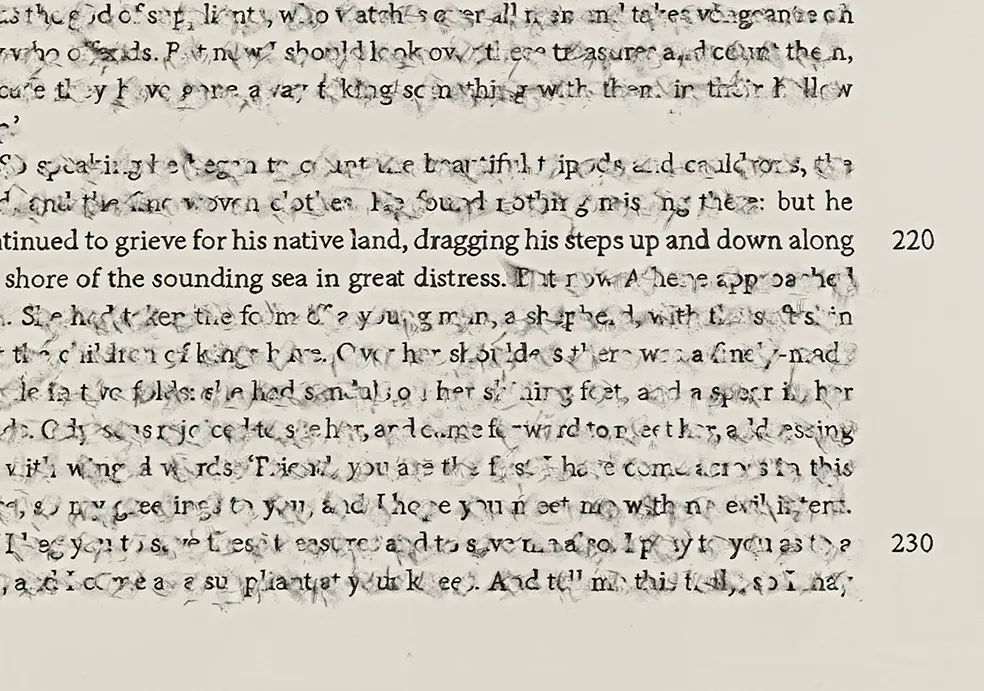 the god of suppliants, who watches over all men and takes vengeance on
who offends. But now I should look over these treasures and count them,
they have gone away taking something with them in their hollow
So speaking he began to count the beautiful tripods and cauldrons, the
and the fine woven clothes. He found nothing missing there: but he
tinued to grieve for his native land, dragging his steps up and down along 220
shore of the sounding sea in great distress. But now Athene approached
. She had taken the form of a young man, a shepherd, with
the children of kings have. Over her shoulders there was a finely-made
in two folds: she had sandals on her shining feet, and a spear in her
Odysseus rejoiced to see her, and came forward to meet her, addressing
with winged words: ‘Friend, you are the first I have come across in this
, so my greetings to you, and I hope you meet me with no evil intent.
I beg you to save these treasures and to save me also. I pray to you as to a 230
, and I come as a suppliant at your knees. And tell me this truly, so I may